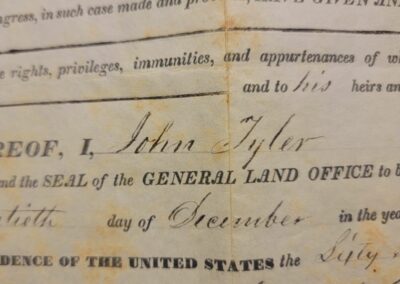 ngress, in such case made and
rights, privileges, immunities, and appurtenances of
and to his heirs an
REOF, I, John Tyler
nd the SEAL of the GENERAL LAND OFFICE to b
tieth day of December in the yea
DENCE OF THE UNITED STATES the Sixty